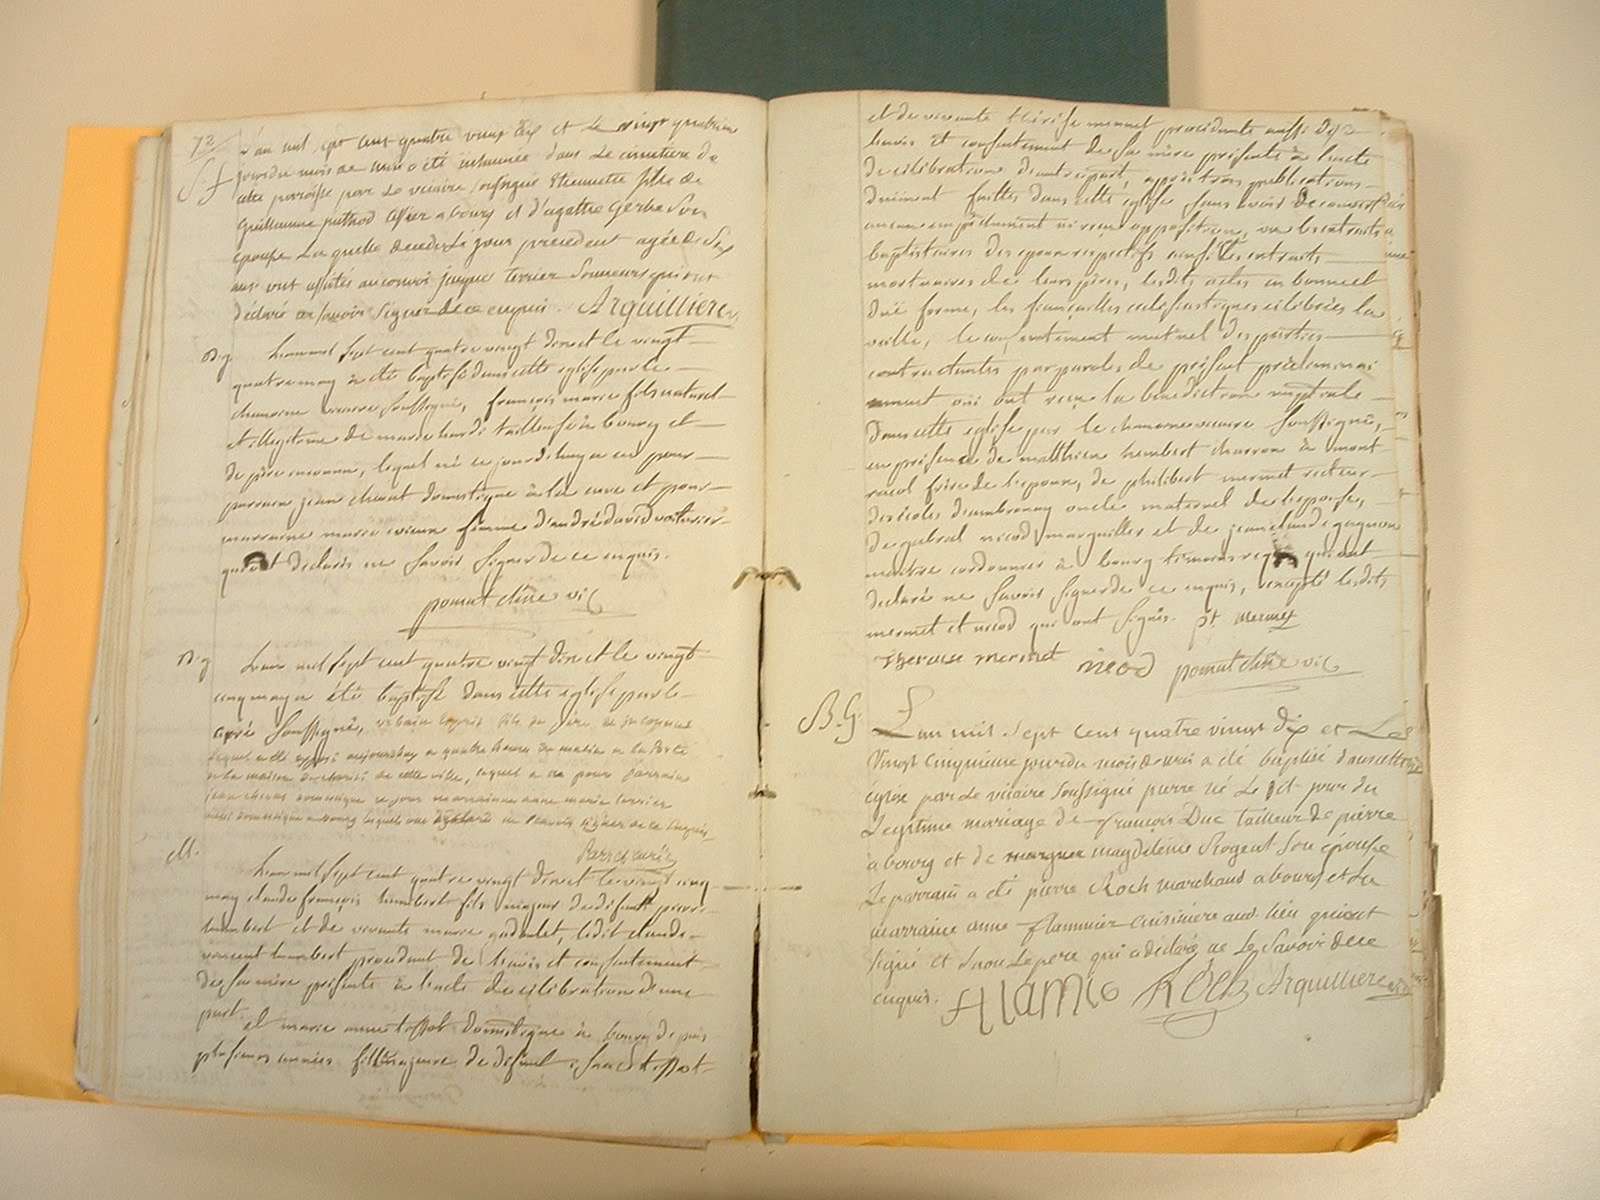 72
S. f
L'an mil sept cent quatre vingt dix et Le vingt quatrieme
jour du mois de mai a été inhumée dans Le cimetiere de
cette paroisse par Le vicaire soussigné Etiennette fille de
Guillaume puthod a bourg et d'agathe Gerbe son
epouse La quelle decedée Le jour precedent agée de six
ans ont assistés au convoi jaque terrier Sonneurs qui ont
déclaré ne sçavoir Signer de ce enquis. Arquilliere
B. g.
L'an mil sept cent quatre vingt dix et le vingt
quatre may à été baptisé dans cette eglise par le
chanoine vicaire Soussigné, françois marie fils naturel
et illegitime de marie tailleuse à bourg et
de père inconnu, lequel né ce jourd'huy a eu pour
parrain jean chevat domestique à la cure et pour
marraine marie femme d'andré david voiturier
qui ont declarés ne Savoir Signer de ce enquis.
pomat chne vic
B. g
L'an mil sept cent quatre vingt dix et le vingt
cinq may a été baptisé dans cette eglise par le
curé Soussigné, fils de père et mere inconnus
lequel a été exposé aujourdhuy a quatre heures du matin a la Porte
de la maison de charité de cette ville, lequel a eu pour Parrain
jean chevat domestique et pour marrainne anne marie terrier
aussi domestique a bourg lesquels ont declaré ne Scavoir signer de ce Enquis
curé
M.
L'an mil sept cent quatre vingt dix et le vingt cinq
may claude françois humbert fils majeur de défunt pierre
humbert et de vivante marie , ledit claude
humbert procedant de l'avis et consentement
de sa mère présente à l'acte de célébration d'une
part.
et marie anne tissot domestique à bourg depuis
plusieurs années fille majeure de défunt tissot
et de vivante thérèse mermet procédante aussi de
l'avis et consentement de sa mère présente à l'acte
de célébration d'autre part, après trois publications
duement faittes dans cette église sans avoir découvert
aucun empêchement ni reçu opposition, vu les extraits
baptistaires des epoux respectifs ensuite les extraits
mortuaires de leurs pères, lesdits actes en bonne et
due forme, les fiançailles ecclésiastiques célébrées la
veille, le consentement mutuel des parties
contractantes par paroles de présent
ont reçu la bénédiction nuptiale
dans cette eglise par le chanoine vicaire soussigné,
en présence de matthieu humbert charron à mont
racol frère de l'epoux, de philibert mermet recteur
des écoles d'ambronay oncle maternel de l'epouse,
de nicod marguiller et de jean claude gagneux
maitre cordonnier à bourg témoins requis qui ont
declaré ne Savoir Signer de ce enquis, excepté lesdits
mermet et nicod qui ont signés. pt mermet
mermet nicod pomat chne vic
B. G.
L'an mil sept cent quatre vingt dix et Le
Vingt cinquieme jour du mois de mai a été baptisé dans cette
église par Le vicaire soussigné pierre né Le dit jour du
Legitime mariage de françois Duc tailleur de pierre
à bourg et de magdeleine Rogeat Son épouse
Le parrain a été pierre Roch marchand a bourg et La
marraine anne cuisiniere aud. lieu qui ont
signé et Le pere qui a declaré ne Le Savoir de ce
enquis. Roch Arquilliere vic